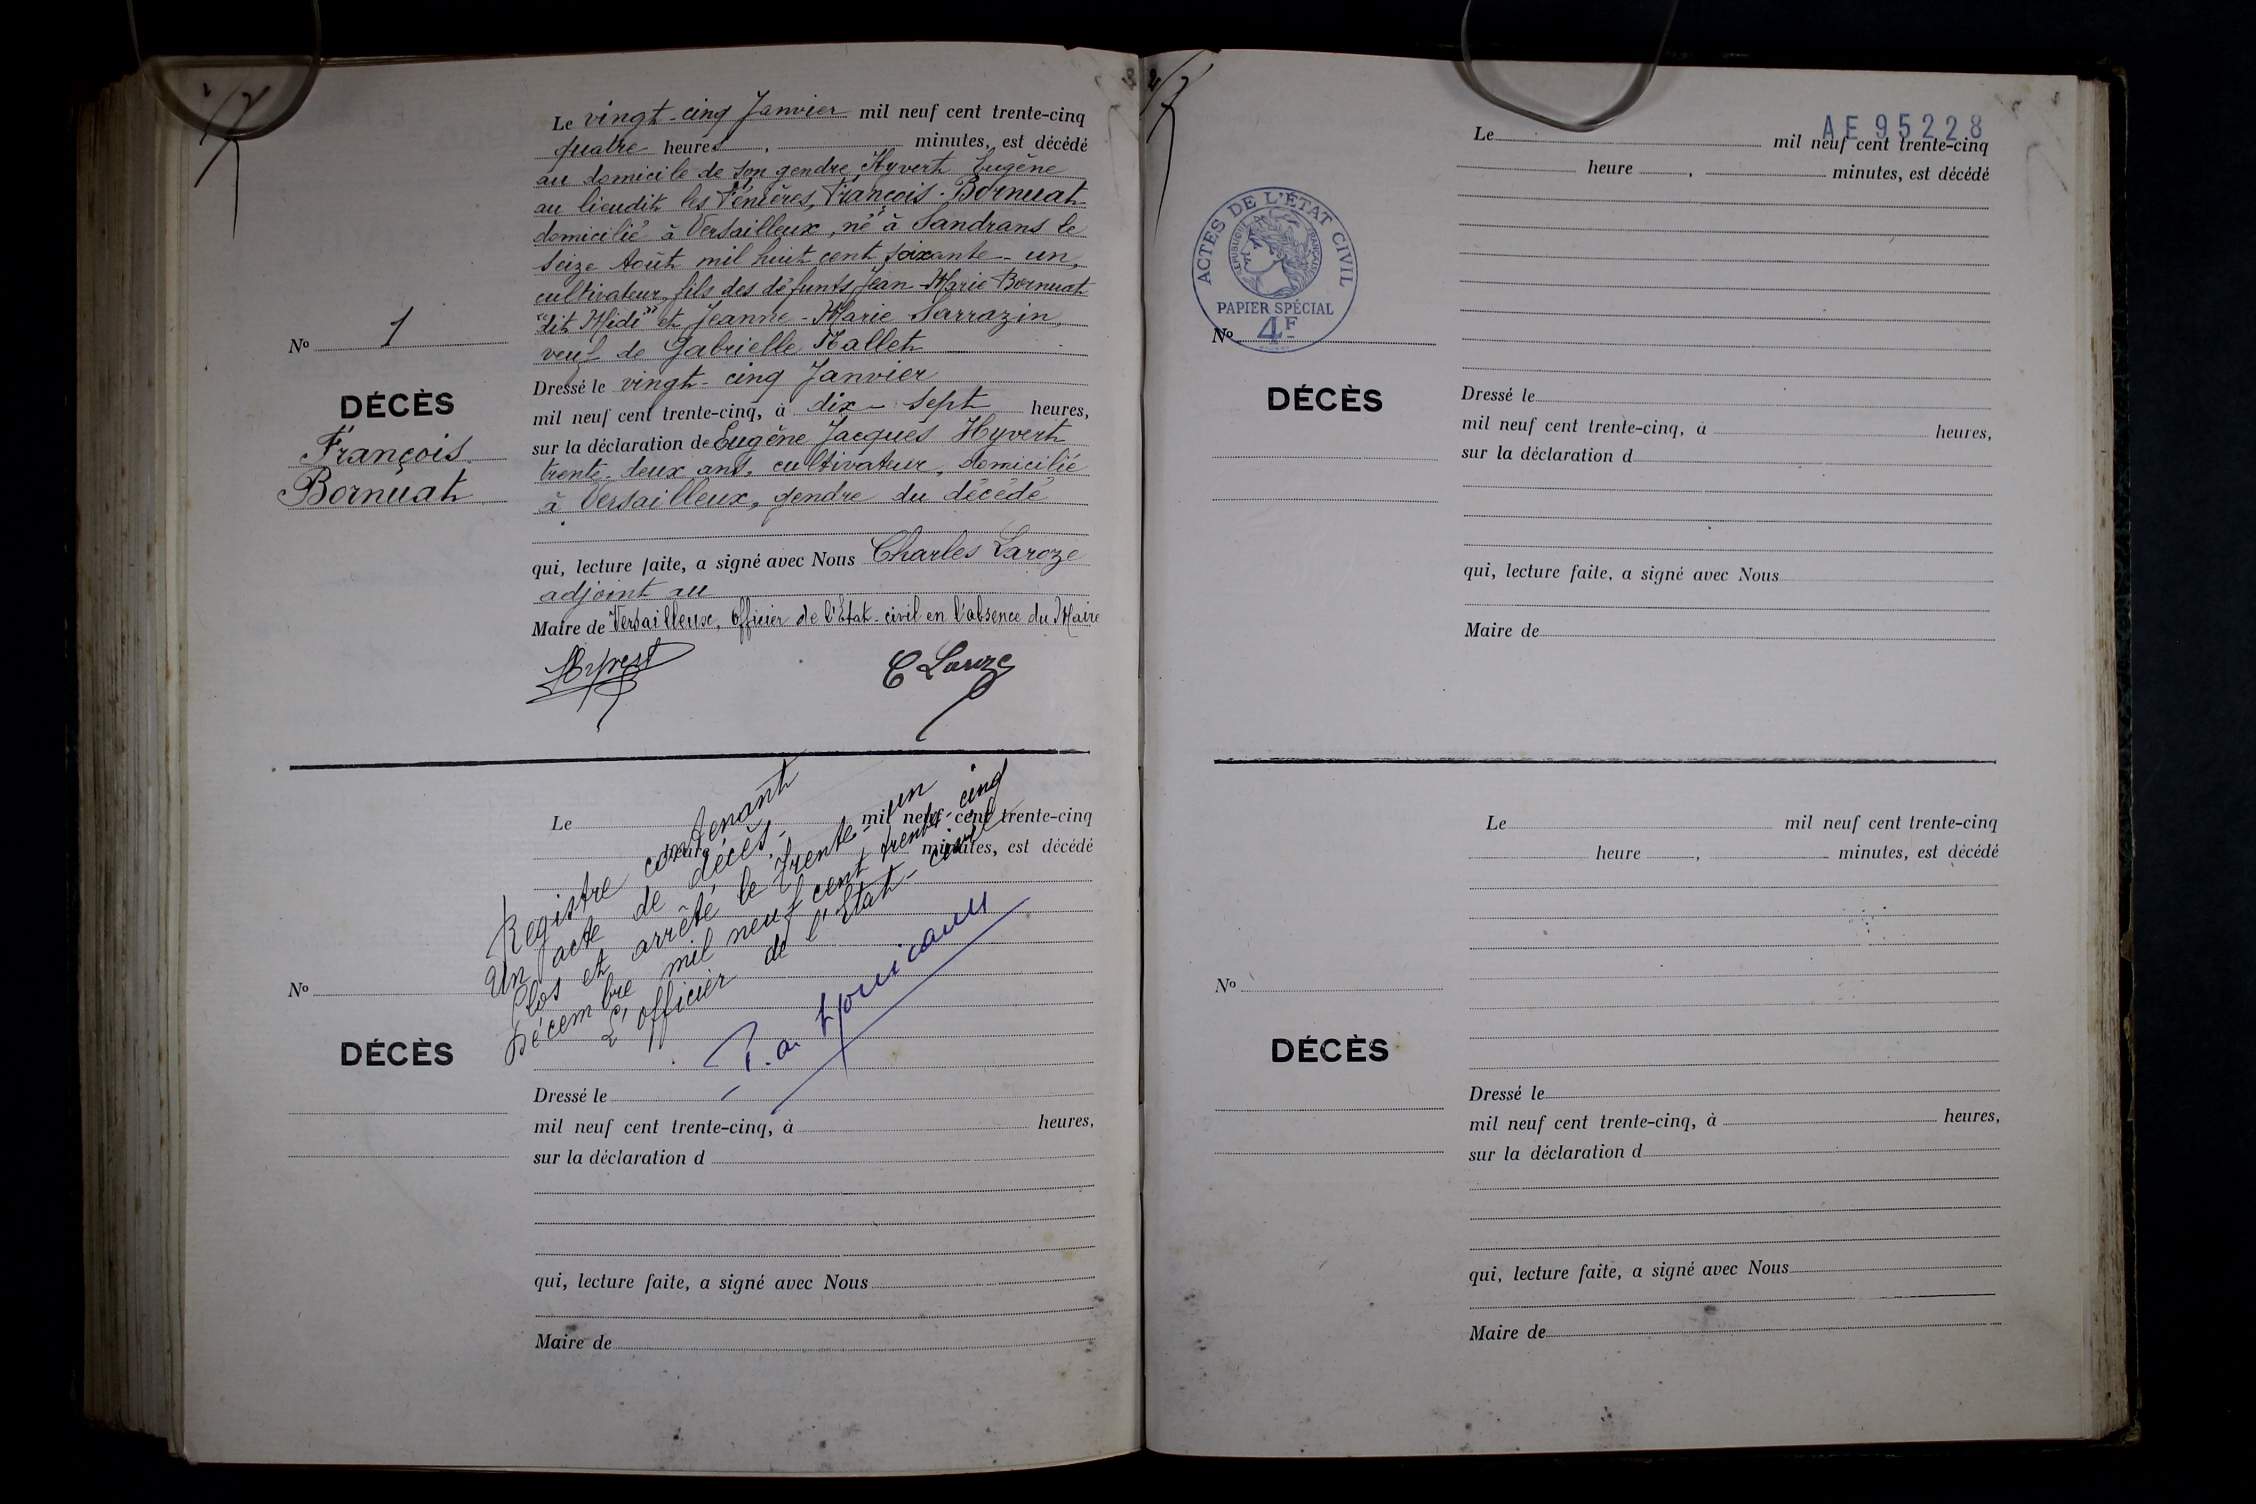 Le vingt-cinq Janvier mil neuf cent trente-cinq
quatre heures, minutes, est décédé
au domicile de son gendre Hyvert Eugène
au lieudit les Fénières, François Bornuat
domicilié à Versailleux, né à Sandrans le
seize Août mil huit cent soixante-un,
cultivateur, fils des défunts Jean-Marie Bornuat
"dit Midi" et Jeanne-Marie Sarrazin,
veuf de Gabrielle Mallet
Nº 1
DÉCÈS
François
Bornuat
Dressé le vingt-cinq Janvier
mil neuf cent trente-cinq, à dix-sept heures,
sur la déclaration de Eugène Jacques Hyvert
trente-deux ans, cultivateur, domicilié
à Versailleux, gendre du décédé
qui, lecture faite, a signé avec Nous Charles Laroze
adjoint au
Maire de Versailleux, officier de l'Etat-civil en l'absence du Maire
Hyvert
C Laroze
Le mil neuf cent trente-cinq
heure minutes, est décédé
Registre contenant
Un acte de décès.
Clos et arrêté le trente-un
Décembre mil neuf cent trente-cinq
L'officier de l'Etat-civil
Nº
DÉCÈS
Dressé le
mil neuf cent trente-cinq, à heures,
sur la déclaration d
qui, lecture faite, a signé avec Nous
Maire de
AE 95228
Le mil neuf cent trente-cinq
heure , minutes, est décédé
ACTES DE L'ÉTAT CIVIL
RÉPUBLIQUE FRANÇAISE
PAPIER SPÉCIAL
4F
Nº
DÉCÈS
Dressé le
mil neuf cent trente-cinq, à heures,
sur la déclaration d
qui, lecture faite, a signé avec Nous
Maire de
Le mil neuf cent trente-cinq
heure , minutes, est décédé
Nº
DÉCÈS
Dressé le
mil neuf cent trente-cinq, à heures,
sur la déclaration d
qui, lecture faite, a signé avec Nous
Maire de